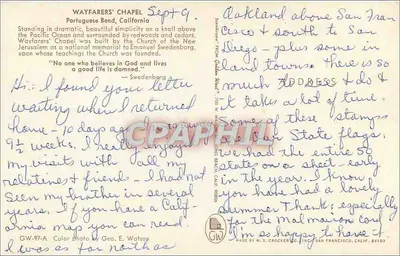 WAYFARERS' CHAPEL
Portuguese Bend, California
Standing in dramatic, beautiful simplicity on a knoll above
the Pacific Ocean and surrounded by redwoods and cedars,
Wayfarers' Chapel was built by the Church of the New
Jerusalem as a national memorial to Emanuel Swedenborg,
upon whose teachings the Church was founded.
"No one who believes in God and lives
a good life is damned."
— Swedenborg
Sept 9.
Hi: I found your letter
waiting when I returned
home - 10 days ago. I was
9½ weeks. I really enjoyed
my visits with all my
relatives & friends - I had not
seen my brother in several
years. If you have a Calif-
ornia map you can read.
I was as far north as
GW-97-A Color photo by Geo. E. Watson
Oakland above San Fran
Cisco & south to San
Diego - plus some in
land towns. There is so
much ADDRESS & do &
it takes a lot of time.
Some of these stamps
are our State flags.
We had the entire 50
states on a sheet - early
in the year. I know
you have had a lovely
summer. Thanks; especially
for the Malmaison card
I'm so happy to have it.
GW
MADE BY H. S. CROCKER CO., INC., SAN FRANCISCO, CALIF. 94103
CPARHII